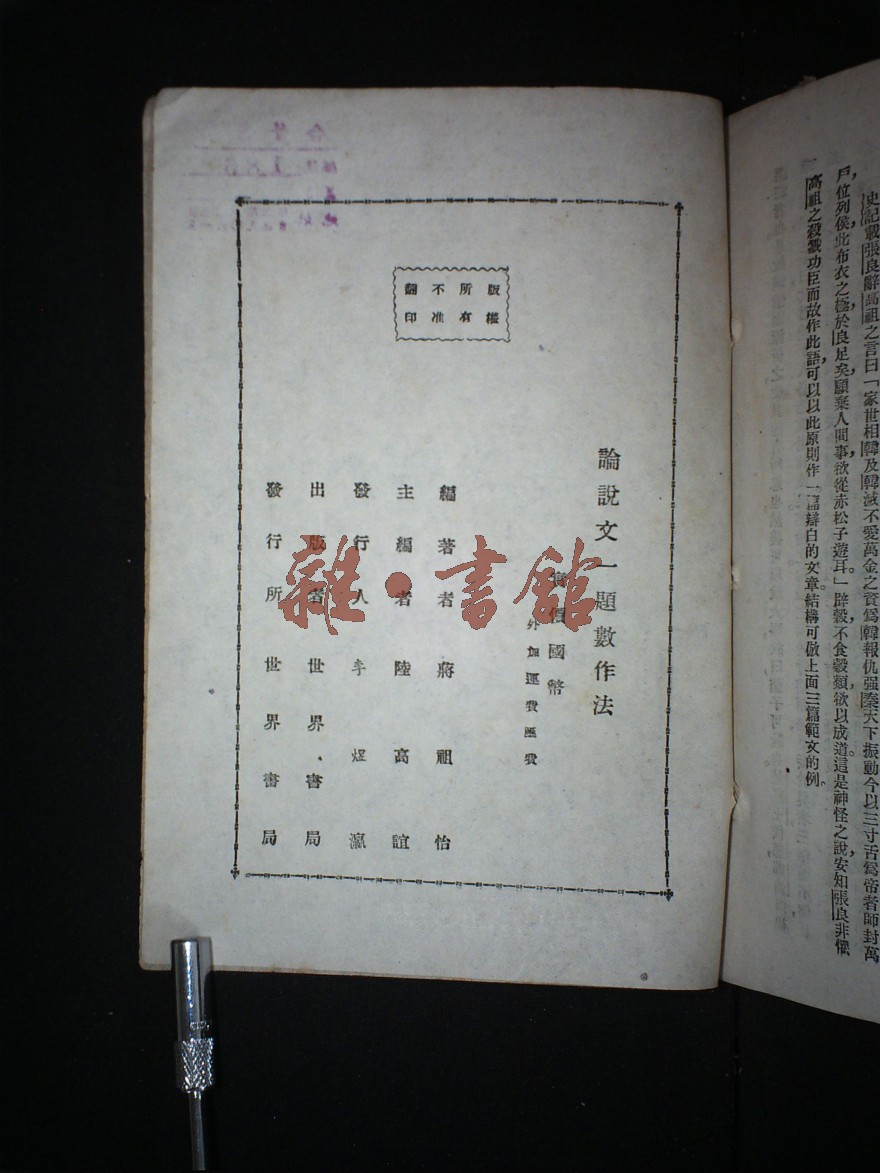 史記載張良辭高祖之言曰「家世相韓及韓滅不愛萬金之資爲韓報仇强秦天下振動今以三寸舌爲帝者師封萬
戶位列侯此布衣之極於良足矣願棄人間事欲從赤松子遊耳。」辟穀不食穀類欲以成道這是神怪之說安知張良非懼
高祖之殺戮功臣而故作此語可以以此原則作一篇辯白的文章結構可倣上面三篇範文的例。
版權
所有
不准
翻印
論說文一題數作法
實價國幣
外加運費匯費
編著者 蔣祖怡
主編者 陸高誼
發行人 李煜瀛
出版者 世界書局
發行所 世界書局
雜·書館